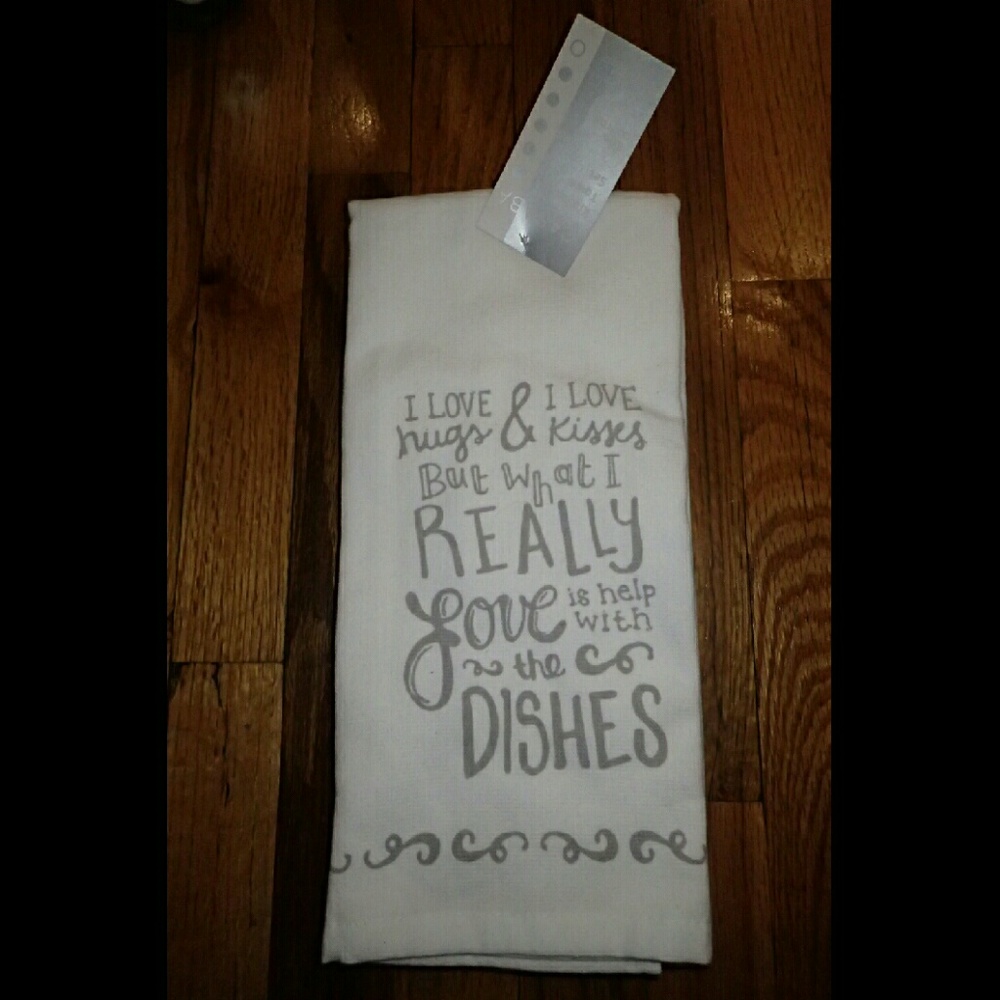 I LOVE & I LOVE
hugs kisses
But What I
REALLY
Love is help
with
the
DISHES